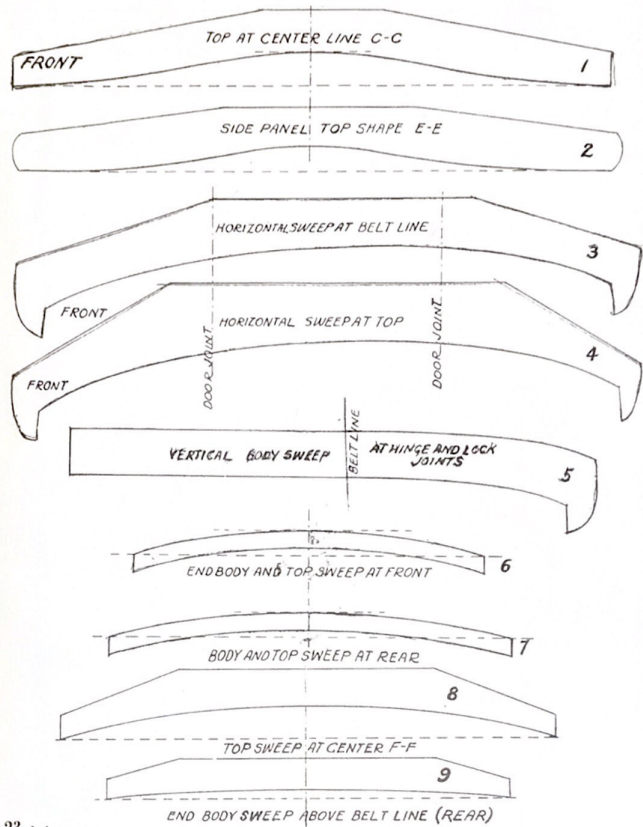 TOP AT CENTER LINE C-C
FRONT
1
SIDE PANEL TOP SHAPE E-E
2
HORIZONTAL SWEEP AT BELT LINE
3
FRONT
HORIZONTAL SWEEP AT TOP
4
FRONT
DOOR JOINT
DOOR JOINT
VERTICAL BODY SWEEP
BELT LINE
AT HINGE AND LOCK
JOINTS
5
6
END BODY AND TOP SWEEP AT FRONT
7
BODY AND TOP SWEEP AT REAR
8
TOP SWEEP AT CENTER F-F
9
END BODY SWEEP ABOVE BELT LINE (REAR)
23